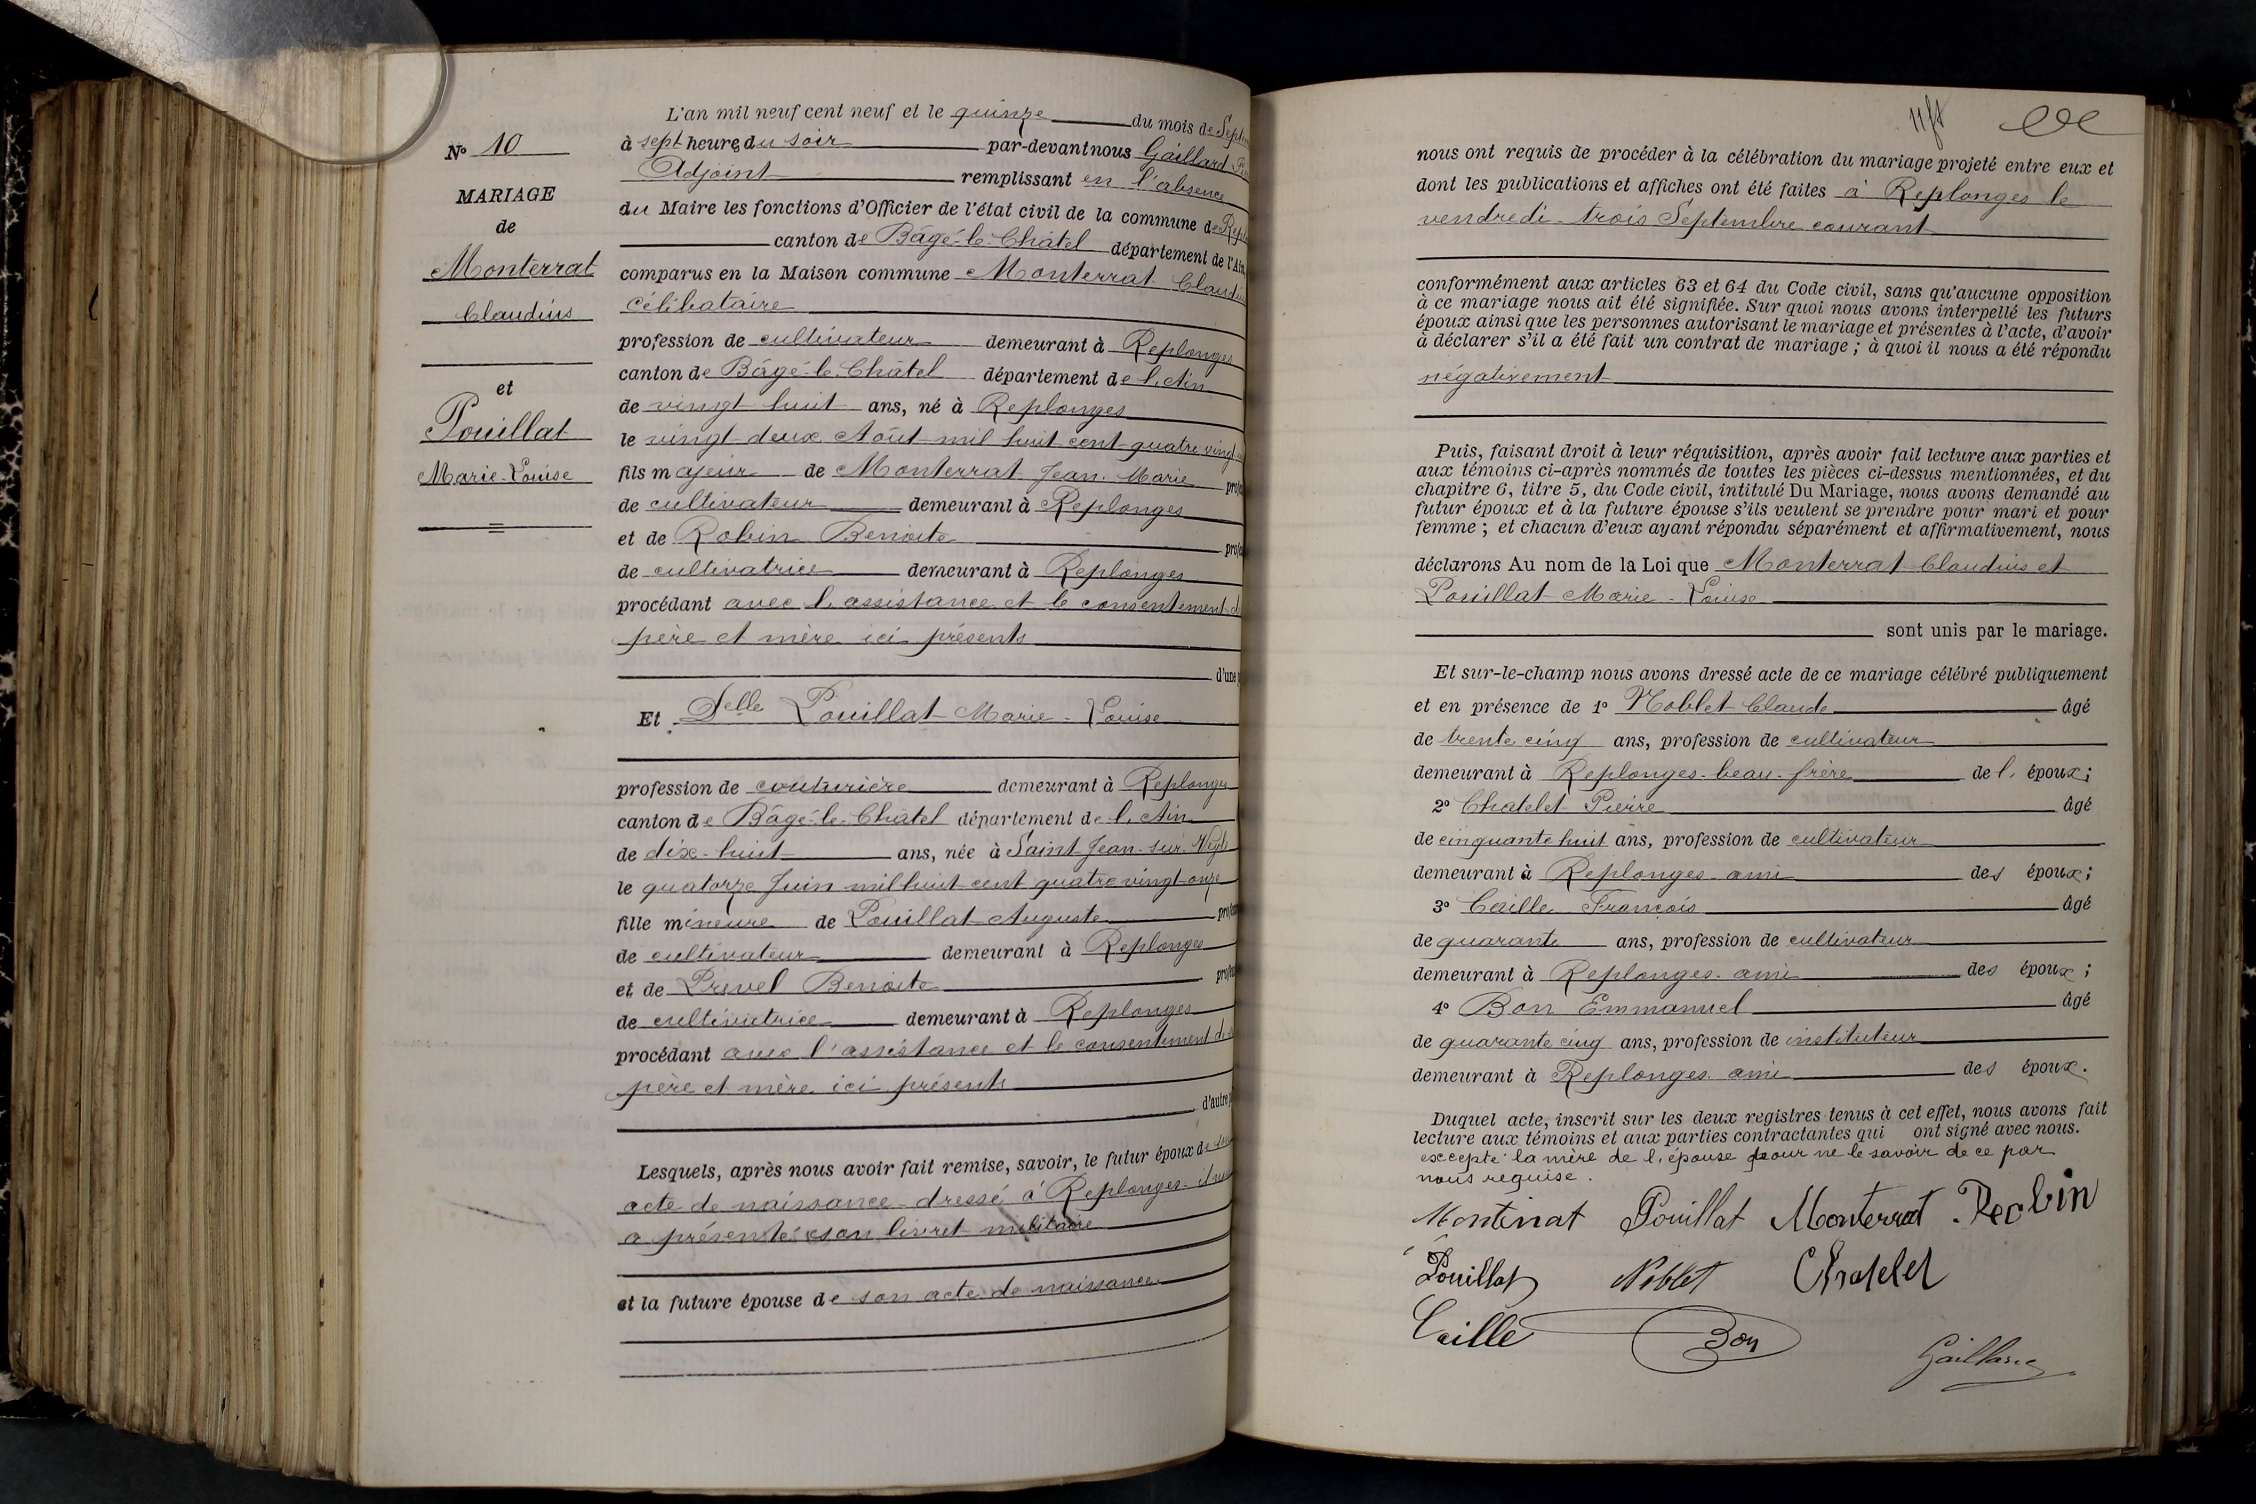 N° 10
MARIAGE
de
Monterrat
Claudius
et
Pouillat
Marie-Louise
L'an mil neuf cent neuf et le quinze du mois de
à sept heures du soir par-devant nous Gaillard
Adjoint remplissant en l'absence
du Maire les fonctions d'Officier de l'état civil de la commune de
canton de Bâgé-le-Châtel département de l'Ain
comparus en la Maison commune Monterrat
célibataire
profession de cultivateur demeurant à Replonges
canton de Bâgé-le-Châtel département de l'Ain
de vingt huit ans, né à Replonges
le vingt-deux Août mil huit cent quatre vingt
fils majeur de Monterrat Jean-Marie
de cultivateur demeurant à Replonges
et de Robin Benoite
de cultivatrice demeurant à Replonges
procédant avec l'assistance et le consentement
père et mère ici présents
d'une
Et Delle Pouillat Marie-Louise
profession de couturière demeurant à Replonges
canton de Bâgé-le-Châtel département de l'Ain
de dix-huit ans, née à Saint Jean-sur-
le quatorze Juin mil huit cent quatre vingt-onze
fille mineure de Pouillat Auguste
de cultivateur demeurant à Replonges
et de Prevel Benoite
de cultivatrice demeurant à Replonges
procédant avec l'assistance et le consentement de
père et mère ici présents
d'autre
Lesquels, après nous avoir fait remise, savoir, le futur époux de son
acte de naissance dressé à Replonges
a présenté son livret militaire
et la future épouse de son acte de naissance
nous ont requis de procéder à la célébration du mariage projeté entre eux et
dont les publications et affiches ont été faites à Replonges le
vendredi trois Septembre courant
conformément aux articles 63 et 64 du Code civil, sans qu'aucune opposition
à ce mariage nous ait été signifiée. Sur quoi nous avons interpellé les futurs
époux ainsi que les personnes autorisant le mariage et présentes à l'acte, d'avoir
à déclarer s'il a été fait un contrat de mariage ; à quoi il nous a été répondu
négativement
Puis, faisant droit à leur réquisition, après avoir fail lecture aux parties et
aux témoins ci-après nommés de toutes les pièces ci-dessus mentionnées, et du
chapitre 6, titre 5, du Code civil, intitulé Du Mariage, nous avons demandé au
futur époux et à la future épouse s'ils veulent se prendre pour mari et pour
femme ; et chacun d'eux ayant répondu séparément et affirmativement, nous
déclarons Au nom de la Loi que Monterrat Claudius et
Pouillat Marie-Louise
sont unis par le mariage.
Et sur-le-champ nous avons dressé acte de ce mariage célébré publiquement
et en présence de 1° Noblet Claude âgé
de trente cinq ans, profession de cultivateur
demeurant à Replonges-beau-frère de l' époux;
2° Chatelet Pierre âgé
de cinquante huit ans, profession de cultivateur
demeurant à Replonges-ami des époux;
3° Caille François âgé
de quarante ans, profession de cultivateur
demeurant à Replonges-ami des époux;
4° Bon Emmanuel âgé
de quarante cinq ans, profession de instituteur
demeurant à Replonges-ami des époux.
Duquel acte, inscrit sur les deux registres tenus à cet effet, nous avons fait
lecture aux témoins et aux parties contractantes qui ont signé avec nous.
excepté la mère de l'épouse pour ne le savoir de ce par
nous requise.
Monterrat Pouillat Monterrat Robin
Pouillat Noblet Chatelet
Caille Bon
Gaillard